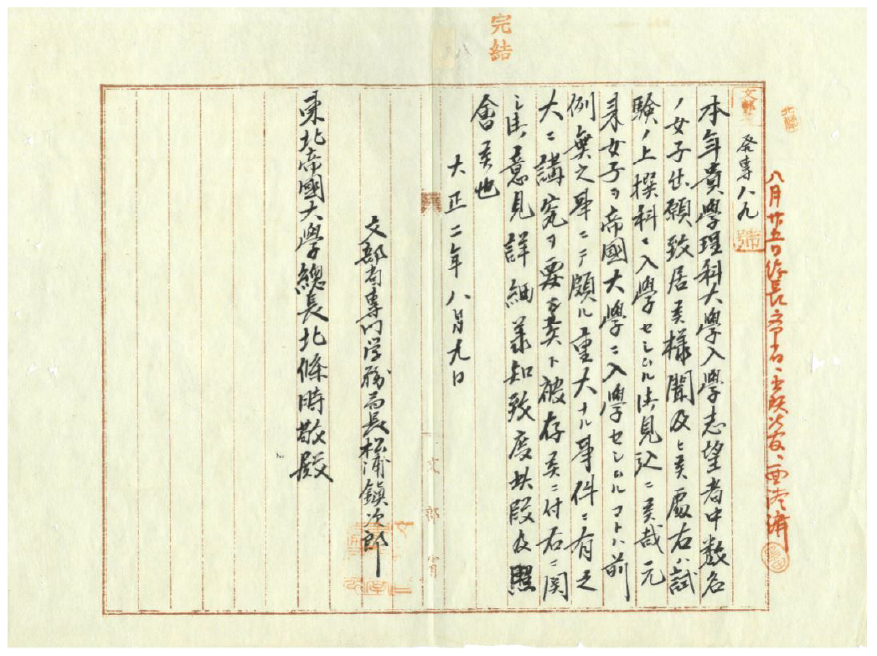 完結
文部省
発専八九
號
本年貴學理科大學入學志望者中数名
ノ女子出願致居候様聞及ヒ候處右ハ試
験ノ上撰科ニ入學セシムル御見込ニ候哉元
来女子ヲ帝國大學ニ入學セシムルコトハ前
例無之事ニテ頗ル重大ナル事件ニ有之
大ニ講究ヲ要シ候ト被存候ニ付右ニ関
シ御意見詳細承知致度此段及照
會候也
大正二年八月九日
文部省専門学務局長松浦鎮次郎
東北帝國大學總長北條時敬殿
文部省
八月廿五日